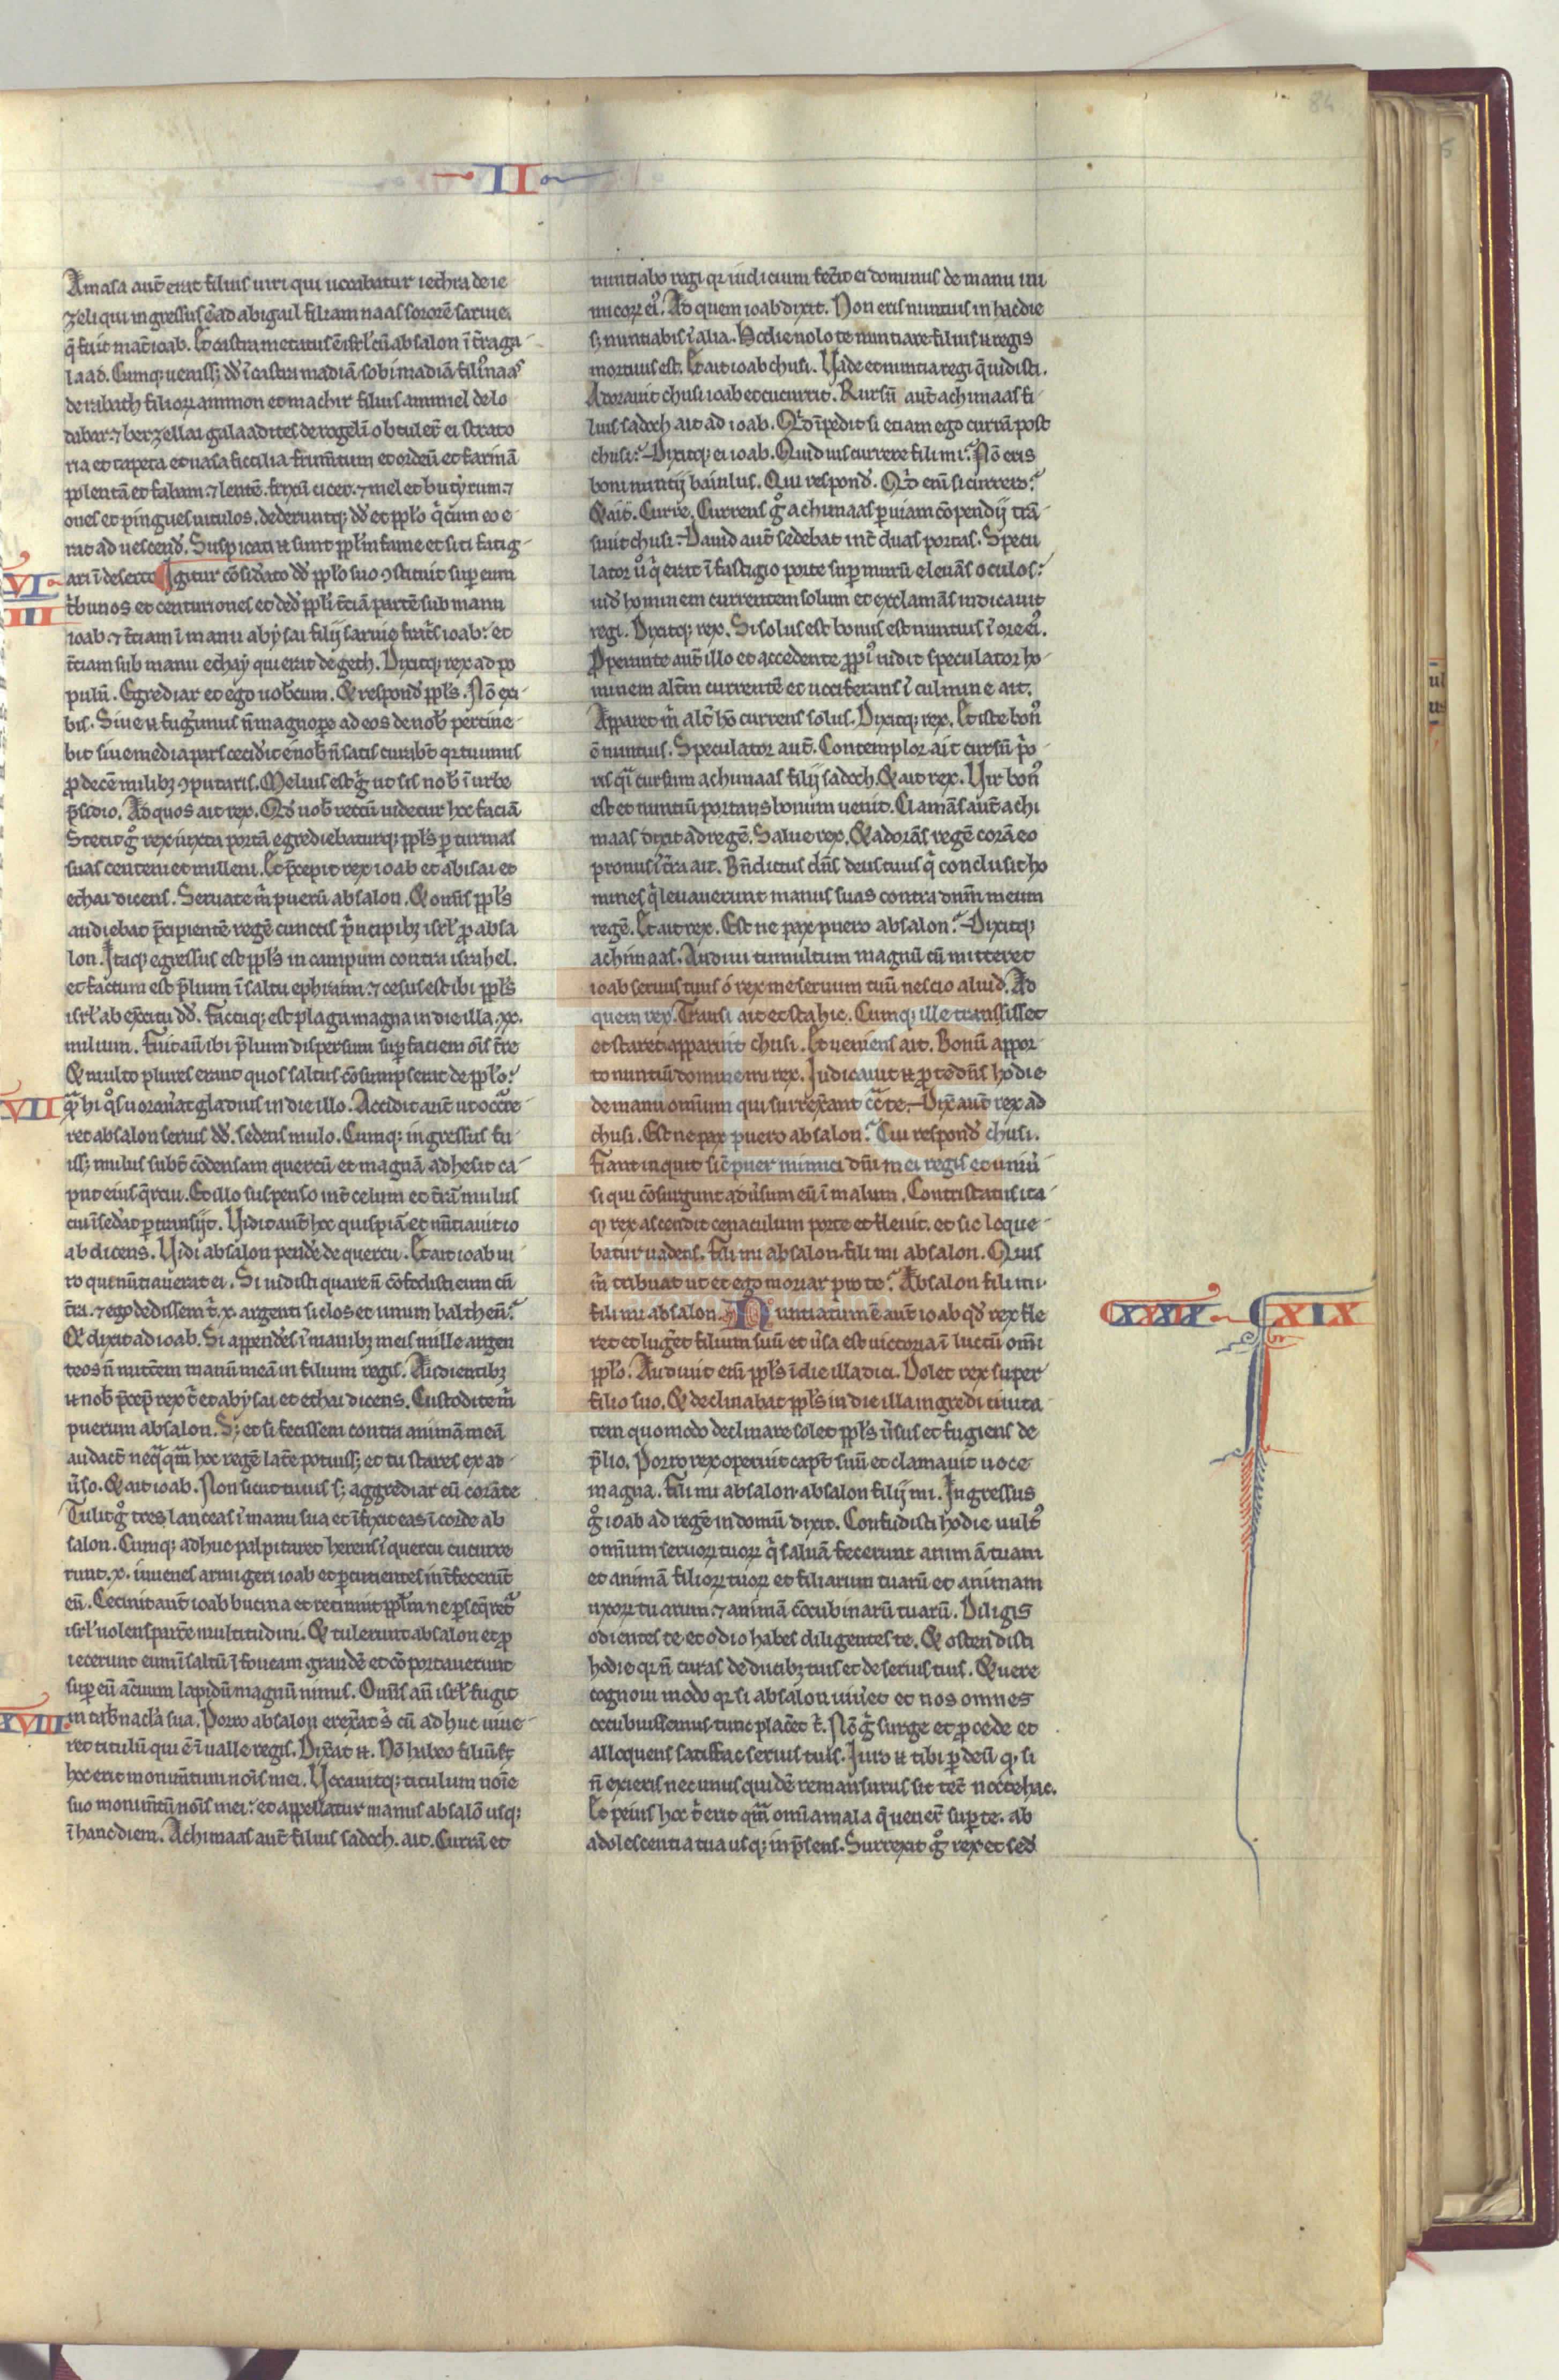 84
II
Amasa aut̄ erat filius uiri qui uocabatur iethra de ie
zeli qui ingressus ē ad abigail filiam naas sororē saruie.
q̄ fuit mat̄ ioab. Et castra metatus ē isrl̄ cū absalon ī t̄ra ga
laad. Cumq; ueniss; dd̄ ī castra madiā sobi madiā filiꝰ naas
de rabath filioꝝ ammon et machir filius ammiel de lo
dabar. ⁊ berzellai galaadites de rogelī obtuler̄t ei strato
ria et tapeta et uasa fictilia frum̄tum et ordeū et farinā
polentā et fabam. ⁊ lentē. frixū cicer. ⁊ mel et butyrum. ⁊
oues et pingues uitulos. dederuntq; dd̄ et ppl̄o q̄ cum eo e
rat ad uescend̄. Suspicati n̄ sunt ppl̄m fame et siti fatig
VI
ari ī deserto. Igitur cōsid̄ato dd̄ ppl̄o suo ꝯstituit sup eum
III
t̄bunos et centuriones et ded̄ ppl̄i t̄ciā partē sub manu
ioab. ⁊ t̄ciam ī manu abysai filij saruie frat̄s ioab. et
t̄ciam sub manu echay qui erat de geth. Dixitq; rex ad po
pulū. Egrediar et ego uob̄cum. Et respond̄ ppl̄s. Nō exi
bis. Siue n̄ fuḡimus n̄ magnope ad eos de nob̄ pertine
bit siue media pars cecid̄it e nob̄ n̄ satis curab̄t qꝛ tu unus
ꝓ decē milibꝫ ꝯputaris. Melius est g̊ ut sis nob̄ ī urbe
p̄sidio. Ad quos ait rex. Qd̄ uob̄ rectū uidetur hoc faciā
Stetit g̊ rex iuxta portā egrediebaturq; ppl̄s p turmas
suas centeni et milleni. Et p̄cepit rex ioab et abisai et
echai dicens. Seruate m̄ puerū absalon. Et om̄s ppl̄s
audiebat p̄cipientē regē cunctis p̄ncipibꝫ isrl̄ ꝓ absa
lon. Itaq; egressus est ppl̄s in campum contra israhel.
et factum est p̄lium ī saltu ephraim. ⁊ cesus est ibi ppl̄s
isrl̄ ab ex̄citu dd̄. factaq; est plaga magna in die illa .xx.
milium. Fuit aut̄ ibi p̄lium dispersum sup faciem om̄s t̄re
Et multo plures erant quos saltus cōsumpserat de ppl̄o.
VII
q̄ hi q̊s uorau̇at gladius in die illo. Accidit aut̄ ut occ̄re
ret absalon seruis dd̄. sedens mulo. Cumq; ingressus fu
iss; mulus subt̄ cōdensam quercū et magnā adhesit ca
put eius q̄rcui. Et illo suspenso int̄ celum et t̄rā mulus
cui īsed̄at p transijt. Uidit aut̄ hoc quispiā et nūtiauit io
ab dicens. Uidi absalon pend̄e de quercu. Et ait ioab ui
ro qui nūtiauerat ei. Si uidisti quare n̄ cōfodisti eum cū
t̄ra. ⁊ ego dedissem t̄ .x. argenti siclos et unum baltheū.
Et dixit ad ioab. Si append̄es ī manibꝫ meis mille argen
teos n̄ mitt̄em manū meā in filium regis. Audientibꝫ
n̄ nob̄ p̄cep̄ rex t̄ et abysai et ethai dicens. Custodite m̄
puerum absalon. S; et si fecissem contra animā meā
audact̄ neq̄q̄m̄ hoc regē lat̄e potuiss; et tu stares ex ad
u̇so. Et ait ioab. Non sicut tu uis s; aggrediar eū corā te
Tulit g̊ tres lanceas ī manu sua et īfixit eas ī corde ab
salon. Cumq; adhuc palpitaret herens ī quercu cucurre
runt .x. iuuenes armigeri ioab et p̄cutientes int̄fecer̄t
eū. Cecinit aut̄ ioab bucina et retinuit ppl̄m ne p̄seq̄ret̄
isrl̄ uolens parc̄e multitudini. Et tulerunt absalon et ꝓ
iecerunt eum ī saltū ī foueam grandē et cōportauerunt
sup eū ac̄uum lapidū magnū nimis. Om̄s aut̄ isrl̄ fugit
XVIII
in tab̄nacl̄a sua. Porro absalon erex̄at s̄ cū adhuc uiue
ret titulū qui ē ī ualle regis. Dix̄at n̄. Nō habeo filiū ⁊
hoc erit monum̄tum nois̄ mei. Uocauitq; titulum noīe
suo monum̄tū nois̄ mei. et appellatur manus absalō usq;
ī hanc diem. Achimaas aut̄ filius sadoch. ait. Currā et
nuntiabo regi qꝛ iudicium fec̄it ei dominus de manu ini
micoꝝ eiꝰ. Ad quem ioab dixit. Non eris nuntius in hac die
s; nuntiabis ī alia. Hodie nolo te nuntiare. filius n̄ regis
mortuus est. Et ait ioab chusi. Uade et nuntia regi q̄ uidisti.
Adorauit chusi ioab et cucurrit. Rursū aut̄ achimaas fi
lius sadoch ait ad ioab. Qd̄ īpedit si etiam ego currā post
chusi. Dixitq; ei ioab. Quid uis currere fili mi. Nō eris
boni nuntij baiulus. Qui respond̄. Qd̄ enī si currero.
Et ait. Curre. Currens g̊ achimaas p uiam cōpendij trā
siuit chusi. Dauid aut̄ sedebat int̄ duas portas. Specu
lator ů q̄ erat ī fastigio porte sup murū eleuās oculos.
uid̄ hominem currentem solum et exclamās indicauit
regi. Dixitq; rex. Si solus est bonus est nuntius ī ore eiꝰ.
Ꝓperante aut̄ illo et accedente ꝓpiꝰ uidit speculator ho
minem alt̄m currentē et uociferans ī culmine ait.
Apparet m̄ alt̄ hō currens solus. Dixitq; rex. Et iste bonꝰ
ē nuntius. Speculator aut̄. Contemplor ait cursū p̄o
ris q̄i cursum achimaas filij sadoch. Et ait rex. Uir bonꝰ
est et nuntiū portans bonum uenit. Clamās aut̄ achi
maas dixit ad regē. Salue rex. Et adorās regē corā eo
pronus ī t̄ra ait. Bn̄dictus dn̄s deus tuus q̄ conclusit ho
mines q̄ leuauerunt manus suas contra dnm̄ meum
regē. Et ait rex. Est ne pax puero absalon. Dixitq;
achimaas. Audiui tumultum magnū cū mitteret
ioab seruus tuus o rex me seruum tuū nescio aliud. Ad
quem rex. Transi ait et sta hic. Cumq; ille transisset
et staret apparuit chusi. Et ueniens ait. Bonū appor
to nuntiū domine mi rex. Iudicauit n̄ ꝓ te dn̄s hodie
de manu omīum qui surrex̄ant cc̄ te. Dix̄ aut̄ rex ad
chusi. Est ne pax puero absalon. Cui respond̄ chusi.
Fiant inquit sic̄ puer inimici dn̄i mei regis et uniu̇
si qui cōsurgunt adu̇sum eū ī malum. Contristatus ita
q; rex ascendit cenaculum porte et fleuit. et sic loque
batur uadens. Fili mi absalon. fili mi absalon. Quis
m̄ tribuat ut et ego moriar pro te. Absalon fili mi.
fili mi absalon. Nuntiatum ē aut̄ ioab qd̄ rex fle
CXXXIX CXIX
ret et luḡet filium suū et u̇sa est uictoria ī luctū om̄i
ppl̄o. Audiuit enī ppl̄s ī die illa dici. Dolet rex super
filio suo. Et declinabat ppl̄s in die illa ingredi ciuita
tem quomodo declinare solet ppl̄s u̇sus et fugiens de
p̄lio. Porro rex operuit cap̄t suū et clamauit uoce
magna. Fili mi absalon. absalon filij mi. Ingressus
g̊ ioab ad regē in domū dixit. Confudisti hodie uultꝰ
omīum seruoꝝ tuoꝝ q̄ saluā fecerunt animā tuam
et animā filioꝝ tuoꝝ et filiarum tuarū et animam
uxoꝝ tuarum. ⁊ animā cōcubinarū tuarū. Diligis
odientes te. et odio habes diligentes te. Et ostendisti
hodie qꝛ n̄ curas de ducibꝫ tuis et de seruis tuis. Et uere
cognoui modo qꝛ si absalon uiu̇et et nos omnes
occubuissemus. tunc plac̄et t̄. Nō g̊ surge et ꝓcede et
alloquens satisfac seruis tuis. Iuro n̄ tibi p dn̄m q; si
n̄ exieris nec unus quidē remansurus sit tec̄ nocte hac.
Et peius hoc t̄ erit qm̄ omīa mala q̄ uener̄t sup te. ab
adolescentia tua usq; in p̄sens. Surrexit g̊ rex et sed̄